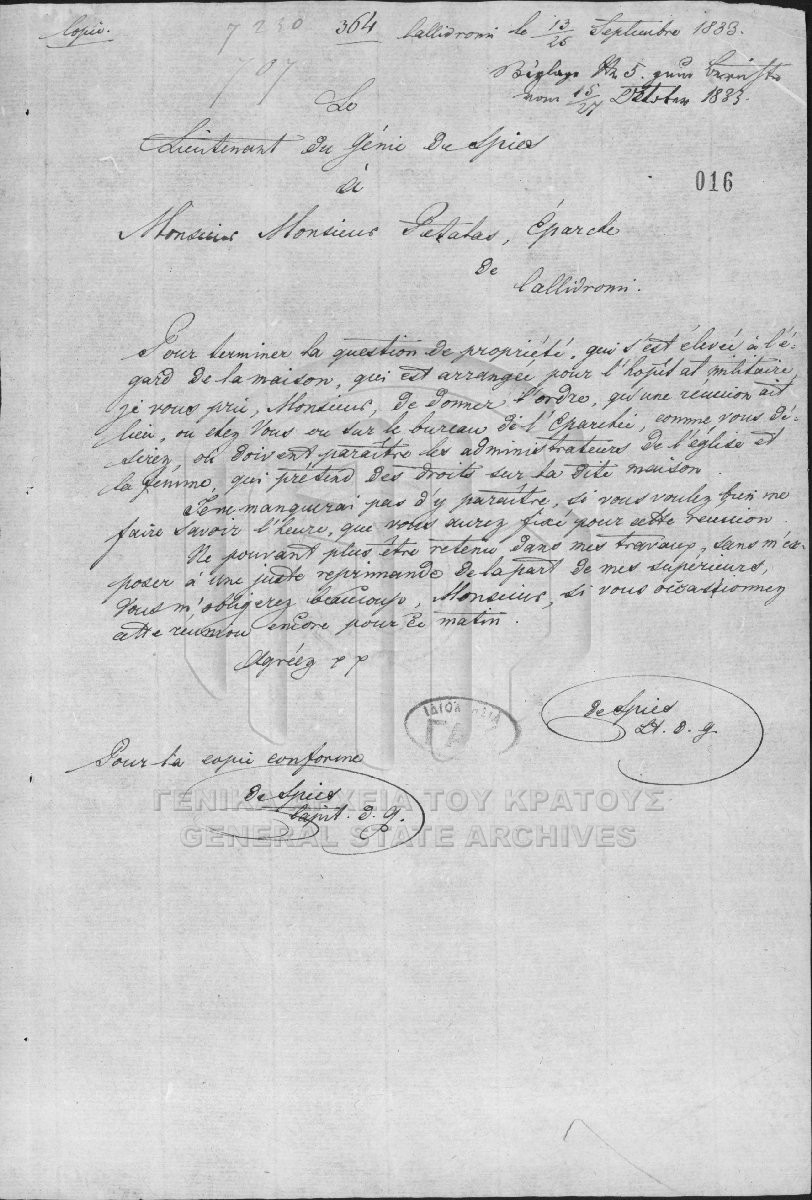 Copie.
7230 364 Callidromi le 13/25 Septembre 1833.
707
Beylage No 5. zum Bericht
vom 15/27 October 1833.
Le
Lieutenant du Génie de Spies
à
016
Monsieur Monsieur Petatas, Éparche
de
Callidromi.
Pour terminer la question de propriété, qui s'est élevée à l'é-
gard de la maison, qui est arrangée pour l'hôpital militaire,
je vous prie, Monsieur, de donner l'ordre, qu'une réunion ait
lieu, ou chez Vous ou sur le bureau de l'Eparchie, comme vous dé-
sirez, où doivent paraître les administrateurs de l'église et
la femme, qui prétend des droits sur la dite maison.
Je ne manquerai pas d'y paraître, si vous voulez bien me
faire savoir l'heure, que vous aurez fixé pour cette reunion.
Ne pouvant plus être retenu dans mes travaux, sans m'ex-
poser à une juste reprimande de la part de mes supérieurs,
Vous m'obligerez beaucoup, Monsieur, si vous occassionnez
cette réunion encore pour ce matin.
Agréez pp
de Spies
Lt. d. g.
ΙΔΙΟΚΤΗΣΙΑ
ΓΑΚ
Pour la copie conforme
de Spies
Capit. d. g.
ΓΕΝΙΚΑ ΑΡΧΕΙΑ ΤΟΥ ΚΡΑΤΟΥΣ
GENERAL STATE ARCHIVES